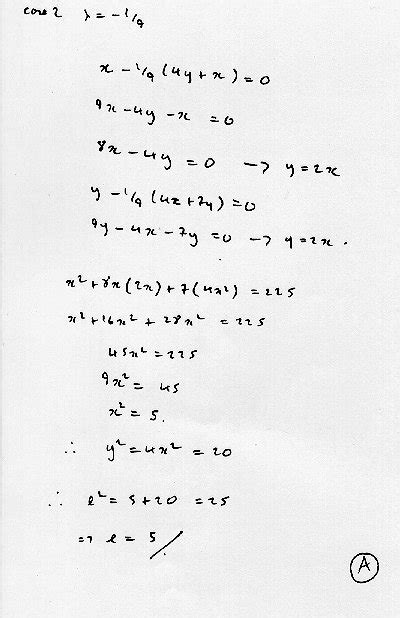 case 2 λ = -1/9
x - 1/9 (4y + x) = 0
9x - 4y - x = 0
8x - 4y = 0 → y = 2x
y - 1/9 (4x + 7y) = 0
9y - 4x - 7y = 0 → y = 2x .
x² + 8x(2x) + 7(4x²) = 225
x² + 16x² + 28x² = 225
45x² = 225
9x² = 45
x² = 5.
∴ y² = 4x² = 20
∴ l² = 5 + 20 = 25
⇒ l = 5 /
A